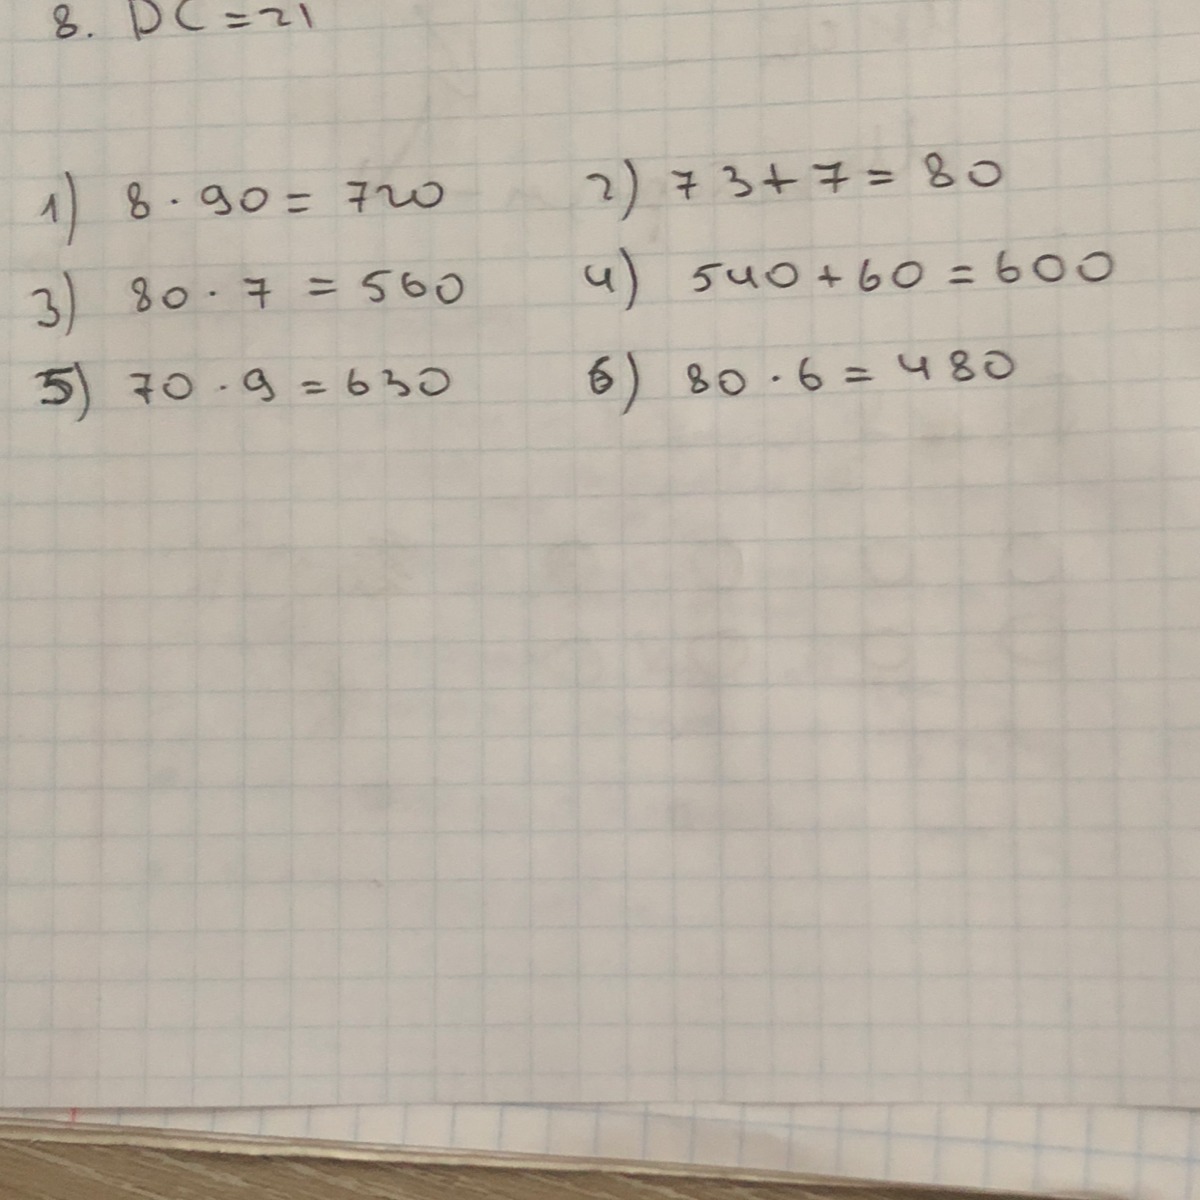 8. DC = 21
1) 8 · 90 = 720 2) 73 + 7 = 80
3) 80 · 7 = 560 4) 540 + 60 = 600
5) 70 · 9 = 630 6) 80 · 6 = 480